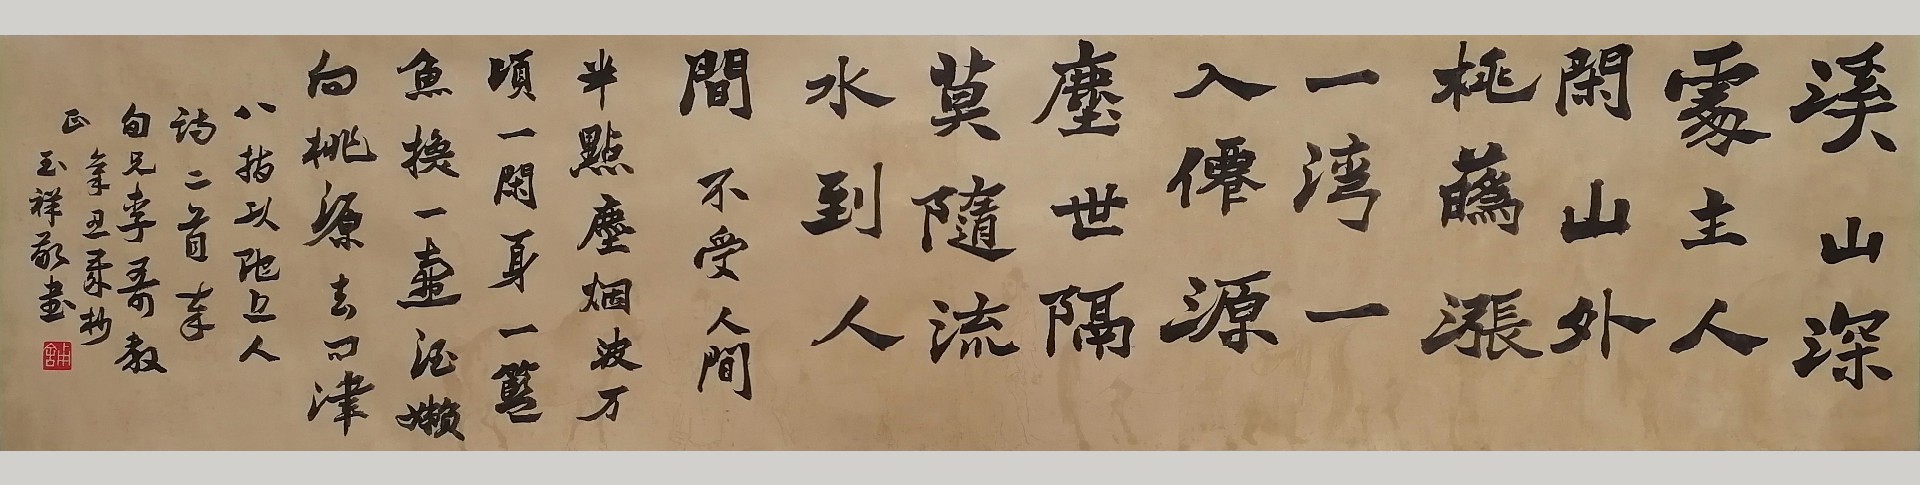 溪山深
處主人
閑山外
桃蘤漲
一湾一
入僊源
塵世隔
莫隨流
水到人
間 不受人間
半點塵烟波万
頃一閑身一籃
魚換一壷酒嬾
向桃源去问津
八指头陀道人
诗二首 奉
甸兄李哥教
正 辛丑夏抄
玉祥敬书